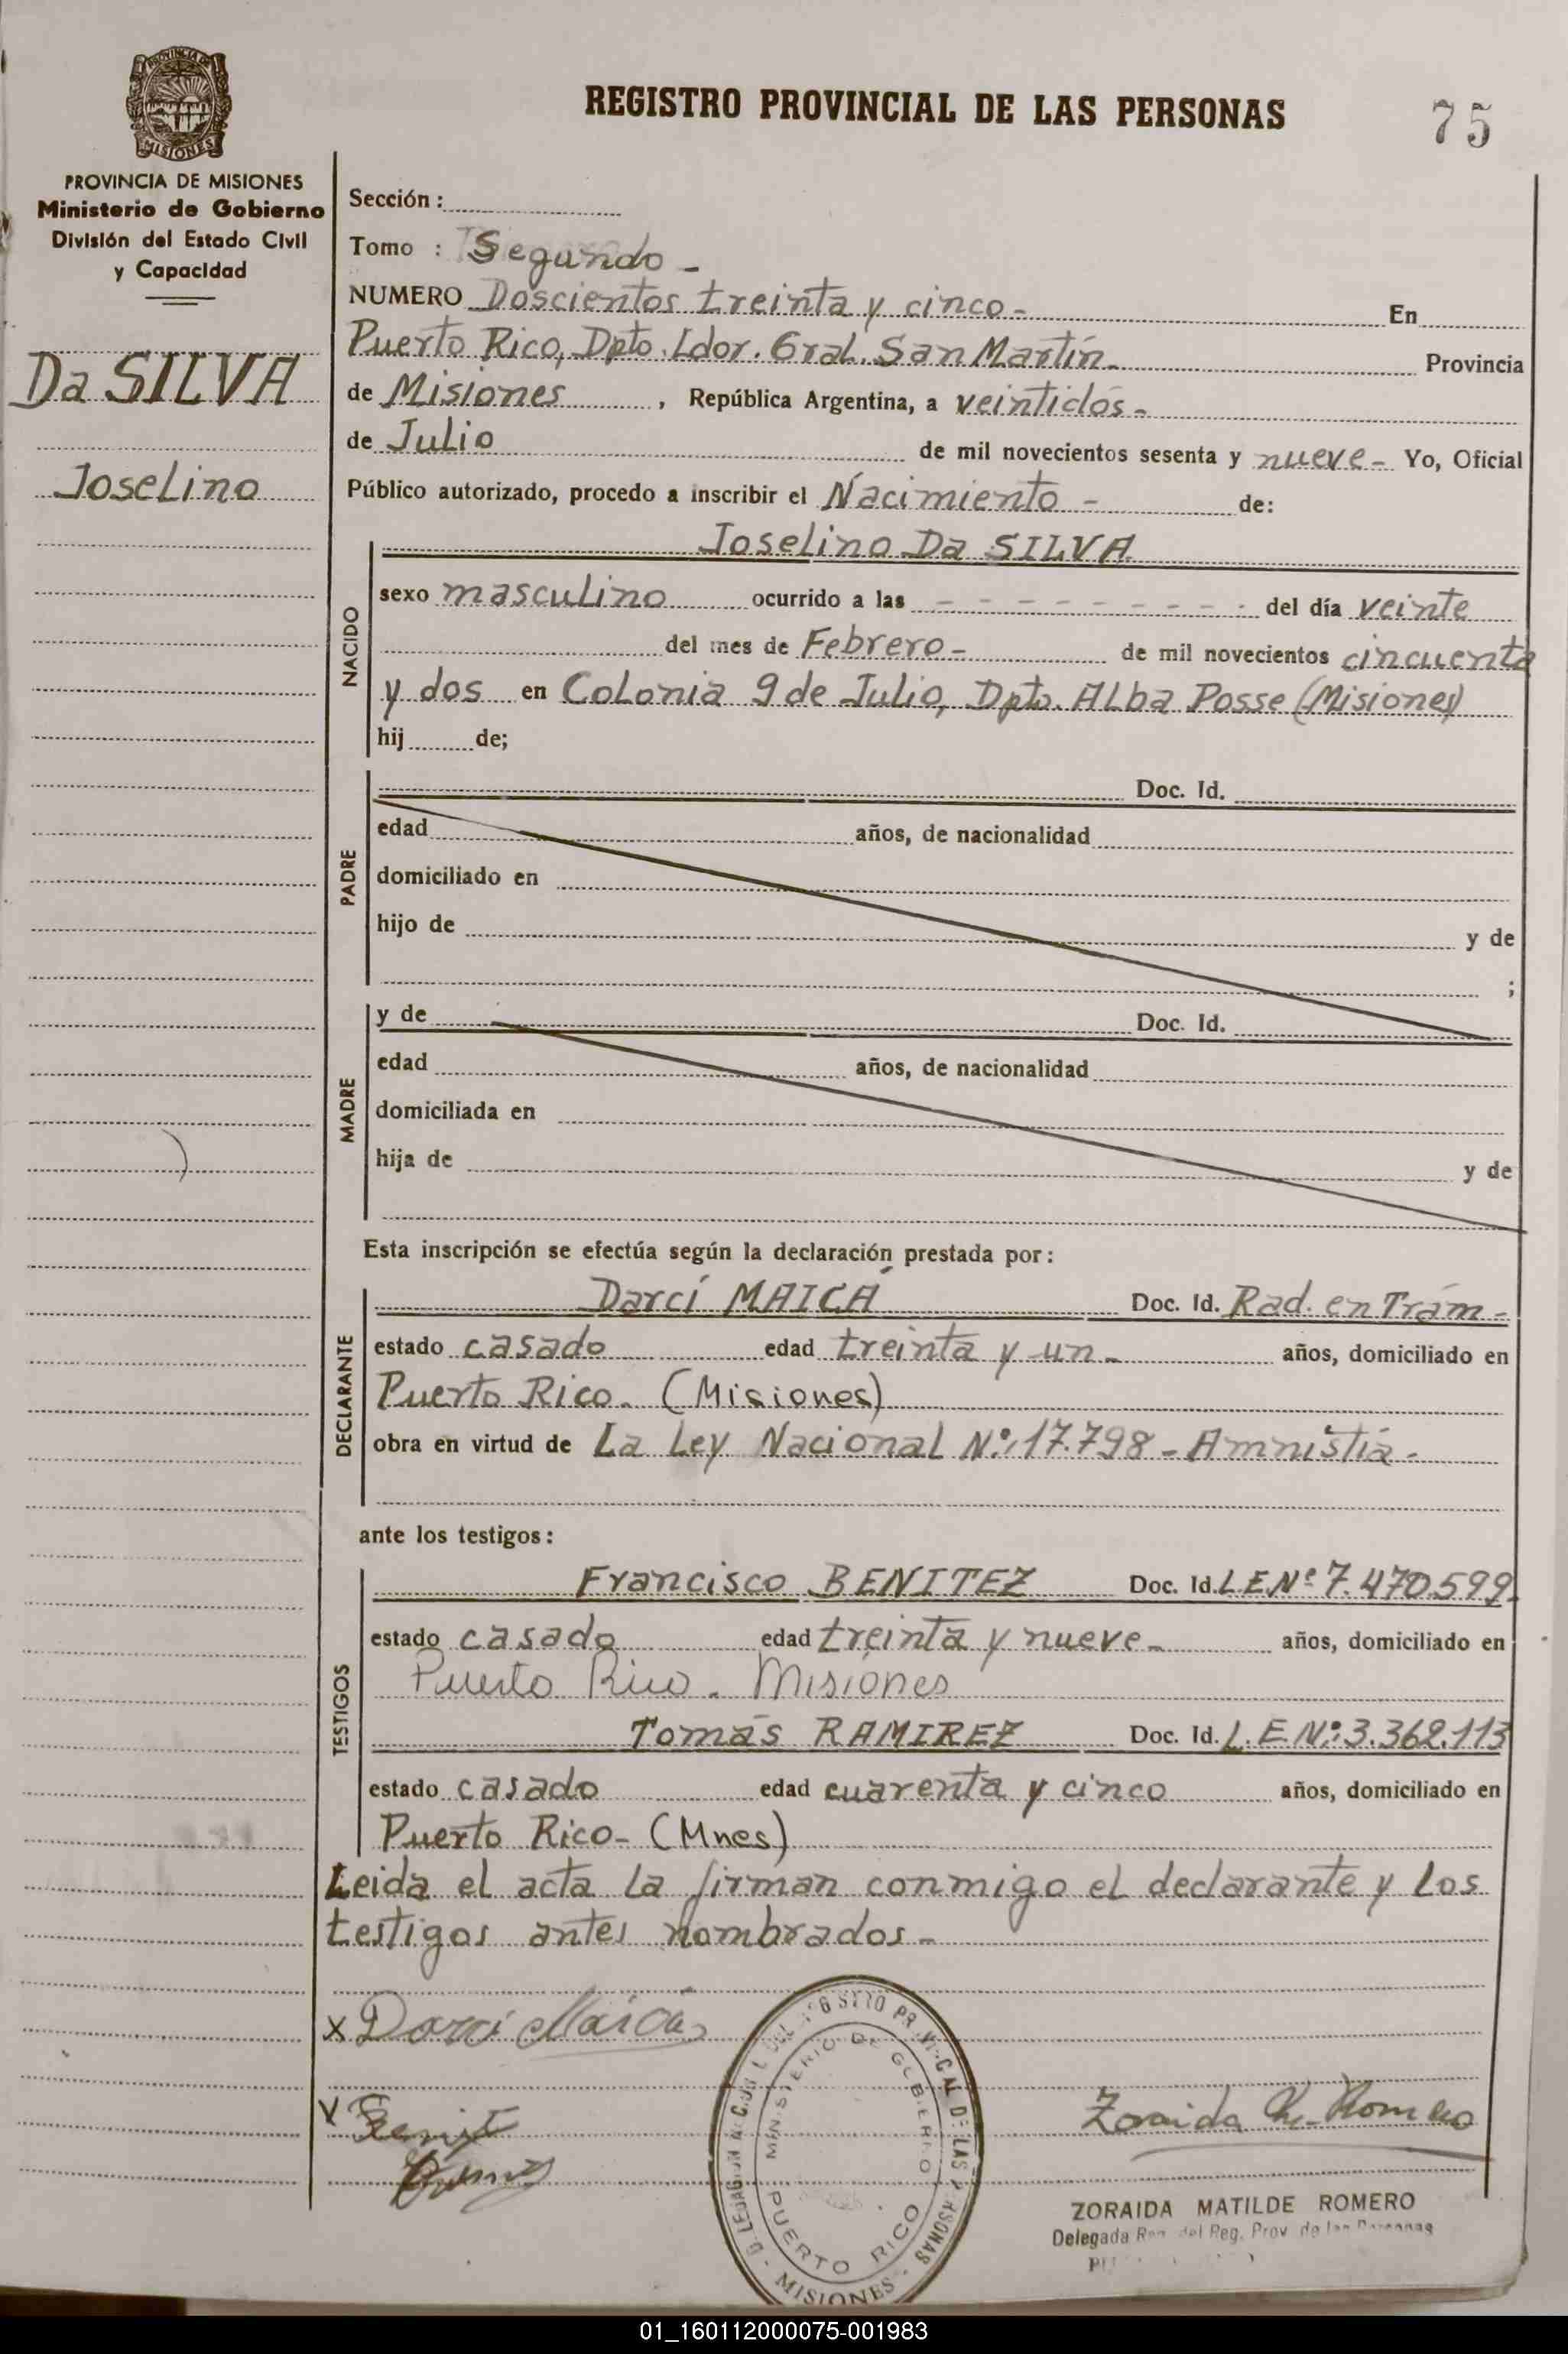 REGISTRO PROVINCIAL DE LAS PERSONAS
75
MISIONES
PROVINCIA DE MISIONES
Ministerio de Gobierno
División del Estado Civil
y Capacidad
Da SILVA
Joselino
Sección :
Tomo : Segundo -
NUMERO Doscientos treinta y cinco - En
Puerto Rico, Dpto. Ldor. Gral. San Martín - Provincia
de Misiones , República Argentina, a veintidós -
de Julio de mil novecientos sesenta y nueve - Yo, Oficial
Público autorizado, procedo a inscribir el Nacimiento - de:
NACIDO
Joselino Da SILVA
sexo masculino ocurrido a las - - - - - - - - - - del día veinte
del mes de Febrero - de mil novecientos cincuenta
y dos en Colonia 9 de Julio, Dpto. Alba Posse (Misiones)
hij de;
PADRE
Doc. Id.
edad años, de nacionalidad
domiciliado en
hijo de y de
;
MADRE
y de Doc. Id.
edad años, de nacionalidad
domiciliada en
hija de y de
Esta inscripción se efectúa según la declaración prestada por:
DECLARANTE
Darcí MAICÁ Doc. Id. Rad. en Trám -
estado casado edad treinta y un - años, domiciliado en
Puerto Rico. (Misiones)
obra en virtud de La Ley Nacional Nº 17.798 - Amnistía -
ante los testigos:
TESTIGOS
Francisco BENITEZ Doc. Id. L.E.Nº 7.470.599
estado casado edad treinta y nueve - años, domiciliado en
Puerto Rico. Misiones
Tomás RAMIREZ Doc. Id. L.E Nº 3.362.113
estado casado edad cuarenta y cinco años, domiciliado en
Puerto Rico - (Mnes)
Leida el acta la firman conmigo el declarante y los
testigos antes nombrados -
x Darci Maicá
Zoraida M. Romero
MINISTERIO DE GOBIERNO
PUERTO RICO
MISIONES
ZORAIDA MATILDE ROMERO
Delegada del Reg. Prov. de las Personas
01_160112000075-001983